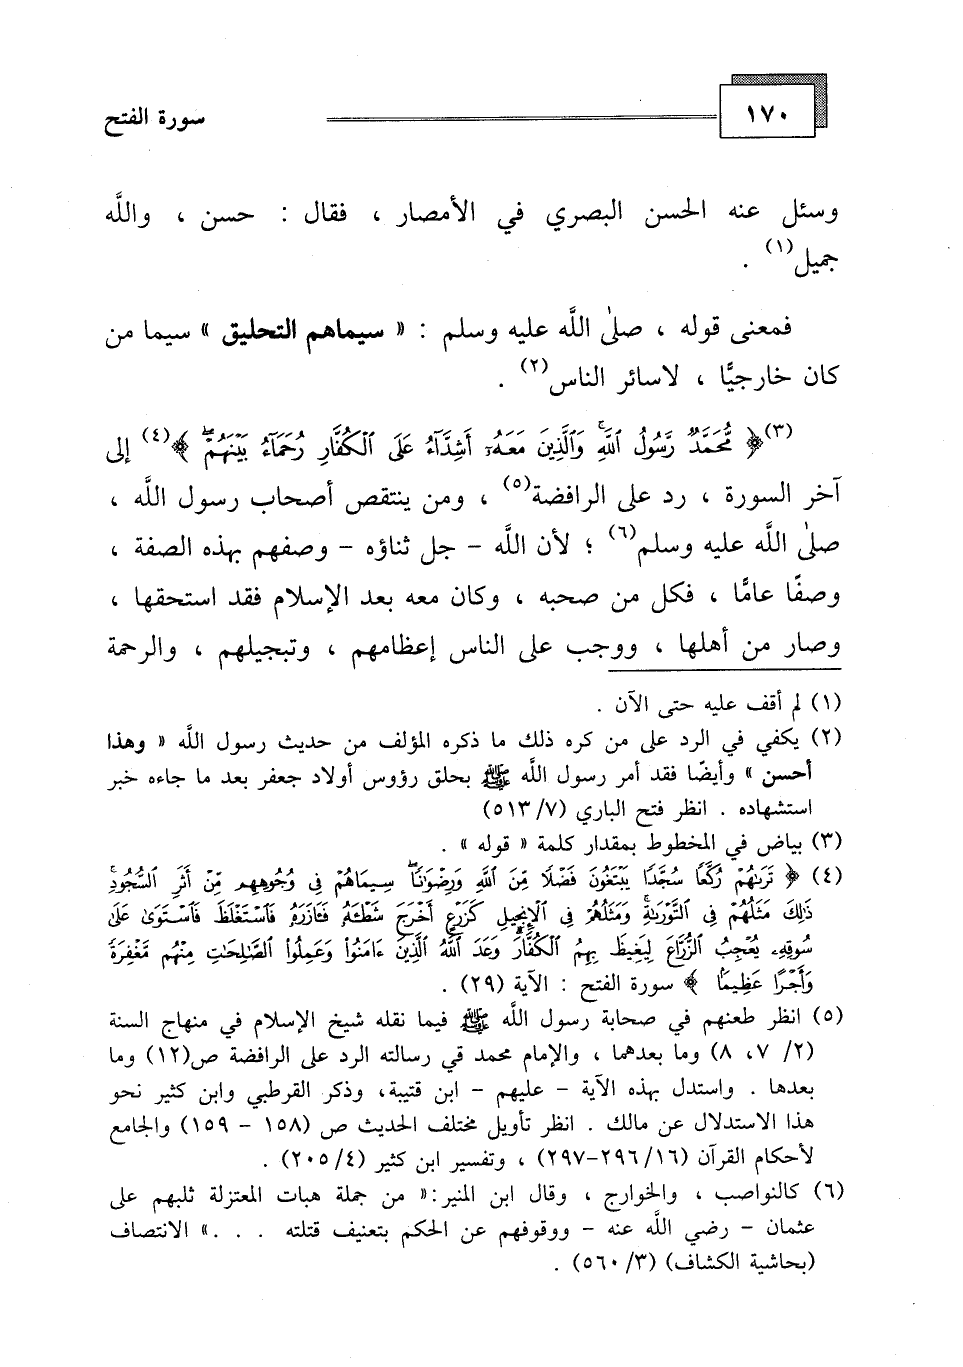 ١٧٠
سورة الفتح
وسئل عنه الحسن البصري في الأمصار ، فقال : حسن ، والله
جميل(١) .
فمعنى قوله ، صلى الله عليه وسلم : « سيماهم التحليق » سيما من
كان خارجيًّا ، لاسائر الناس(٢) .
(٣)﴿ مُّحَمَّدٌ رَّسُولُ ٱللَّهِ وَٱلَّذِينَ مَعَهُۥٓ أَشِدَّآءُ عَلَى ٱلْكُفَّارِ رُحَمَآءُ بَيْنَهُمْۖ ﴾(٤) إلى
آخر السورة ، رد على الرافضة(٥) ، ومن ينتقص أصحاب رسول الله ،
صلى الله عليه وسلم(٦) ؛ لأن الله - جل ثناؤه - وصفهم بهذه الصفة ،
وصفًا عامًّا ، فكل من صحبه ، وكان معه بعد الإسلام فقد استحقها ،
وصار من أهلها ، ووجب على الناس إعظامهم ، وتبجيلهم ، والرحمة
(١) لم أقف عليه حتى الآن .
(٢) يكفي في الرد على من كره ذلك ما ذكره المؤلف من حديث رسول الله « وهذا
أحسن » وأيضًا فقد أمر رسول الله ﷺ بحلق رؤوس أولاد جعفر بعد ما جاءه خبر
استشهاده . انظر فتح الباري (٥١٣/٧)
(٣) بياض في المخطوط بمقدار كلمة « قوله » .
(٤) ﴿ تَرَىٰهُمْ رُكَّعًا سُجَّدًا يَبْتَغُونَ فَضْلًا مِّنَ ٱللَّهِ وَرِضْوَٰنًاۖ سِيمَاهُمْ فِى وُجُوهِهِم مِّنْ أَثَرِ ٱلسُّجُودِۚ
ذَٰلِكَ مَثَلُهُمْ فِى ٱلتَّوْرَىٰةِۚ وَمَثَلُهُمْ فِى ٱلْإِنجِيلِ كَزَرْعٍ أَخْرَجَ شَطْـَٔهُۥ فَـَٔازَرَهُۥ فَٱسْتَغْلَظَ فَٱسْتَوَىٰ عَلَىٰ
سُوقِهِۦ يُعْجِبُ ٱلزُّرَّاعَ لِيَغِيظَ بِهِمُ ٱلْكُفَّارَۗ وَعَدَ ٱللَّهُ ٱلَّذِينَ ءَامَنُوا۟ وَعَمِلُوا۟ ٱلصَّٰلِحَٰتِ مِنْهُم مَّغْفِرَةً
وَأَجْرًا عَظِيمًۢا ﴾ سورة الفتح : الآية (٢٩) .
(٥) انظر طعنهم في صحابة رسول الله ﷺ فيما نقله شيخ الإسلام في منهاج السنة
(٢/ ٧، ٨) وما بعدهما ، والإمام محمد قي رسالته الرد على الرافضة ص(١٢) وما
بعدها . واستدل بهذه الآية - عليهم - ابن قتيبة، وذكر القرطبي وابن كثير نحو
هذا الاستدلال عن مالك . انظر تأويل مختلف الحديث ص (١٥٨ - ١٥٩) والجامع
لأحكام القرآن (٢٩٦/١٦-٢٩٧) ، وتفسير ابن كثير (٢٠٥/٤) .
(٦) كالنواصب ، والخوارج ، وقال ابن المنير :« من جملة هبات المعتزلة ثلبهم على
عثمان - رضي الله عنه - ووقوفهم عن الحكم بتعنيف قتلته . . .» الانتصاف
(بحاشية الكشاف) (٥٦٠/٣) .